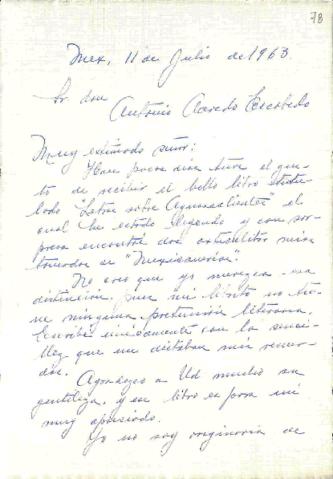 78
Mex, 11 de Julio de 1963.
Sr don
Antonio Acevedo Escobedo
Muy estimado señor:
Hace pocos días tuve el gus-
to de recibir el bello libro titu-
lado "Letras sobre Aguascalientes" el
cual he estado leyendo y con sor-
presa encontré dos articulitos míos
tomados de "Mexicanerías".
No creo que yo merezca esa
distinción, pues mi librito no tie-
ne ninguna pretensión literaria.
Escribí únicamente con la senci-
llez que me dictaban mis recuer-
dos.
Agradezco a Ud mucho su
gentileza, y ese libro es para mí
muy apreciado.
Yo no soy originaria de